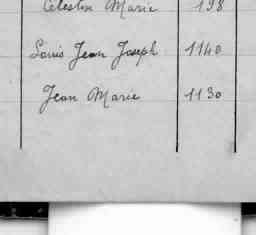 Célestin Marie 198
Louis Jean Joseph 1140
Jean Marie 1130